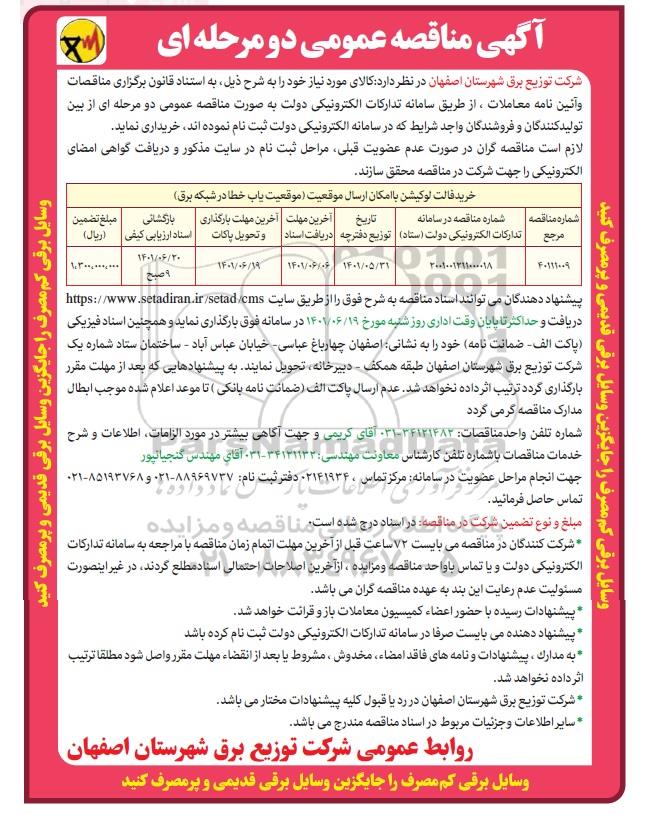 آگهی مناقصه عمومی دو مرحله ای
شرکت توزیع برق شهرستان اصفهان در نظر دارد: کالای مورد نیاز خود را به شرح ذیل، به استناد قانون برگزاری مناقصات
وآئین نامه معاملات ، از طریق سامانه تدارکات الکترونیکی دولت به صورت مناقصه عمومی دو مرحله ای از بین
تولیدکنندگان و فروشندگان واجد شرایط که در سامانه الکترونیکی دولت ثبت نام نموده اند، خریداری نماید.
لازم است مناقصه گران در صورت عدم عضویت قبلی، مراحل ثبت نام در سایت مذکور و دریافت گواهی امضای
الکترونیکی را جهت شرکت در مناقصه محقق سازند.
خرید فالت لوکیشن باامکان ارسال موقعیت (موقعیت یاب خطا در شبکه برق)
شماره مناقصه مرجع | شماره مناقصه در سامانه تدارکات الکترونیکی دولت (ستاد) | تاریخ توزیع دفترچه | آخرین مهلت دریافت اسناد | آخرین مهلت بارگذاری و تحویل پاکات | بازگشائی اسناد ارزیابی کیفی | مبلغ تضمین (ریال)
۴۰۱۱۱۰۰۹ | ۱۴۰۱/۰۵/۳۱ | ۱۴۰۱/۰۶/۰۶ | ۱۴۰۱/۰۶/۱۹ | ۱۴۰۱/۰۶/۲۰ ۹صبح | ۱,۳۰۰,۰۰۰,۰۰۰
پیشنهاد دهندگان می توانند اسناد مناقصه به شرح فوق را از طریق سایت https://www.setadiran.ir/setad/cms
دریافت و حداکثر تا پایان وقت اداری روز شنبه مورخ ۱۴۰۱/۰۶/۱۹ در سامانه فوق بارگذاری نماید و همچنین اسناد فیزیکی
(پاکت الف- ضمانت نامه) خود را به نشانی: اصفهان چهارباغ عباسی- خیابان عباس آباد - ساختمان ستاد شماره یک
شرکت توزیع برق شهرستان اصفهان طبقه همکف - دبیرخانه، تحویل نمایند. به پیشنهادهایی که بعد از مهلت مقرر
بارگذاری گردد ترتیب اثر داده نخواهد شد. عدم ارسال پاکت الف (ضمانت نامه بانکی ) تا موعد اعلام شده موجب ابطال
مدارک مناقصه گر می گردد
شماره تلفن واحدمناقصات: ۳۴۱۲۱۴۸۲-۰۳۱ آقای کریمی و جهت آگاهی بیشتر در مورد الزامات، اطلاعات و شرح
خدمات مناقصات باشماره تلفن کارشناس معاونت مهندسی: ۳۴۱۲۱۱۳۲-۰۳۱ آقای مهندس گنجیانپور
جهت انجام مراحل عضویت در سامانه: مرکز تماس ، ۰۲۱۴۱۹۳۴ دفتر ثبت نام: ۸۸۹۶۹۷۳۷-۰۲۱ و ۸۵۱۹۳۷۶۸-۰۲۱
تماس حاصل فرمائید.
مبلغ و نوع تضمین شرکت در مناقصه: در اسناد درج شده است.
*شرکت کنندگان در مناقصه می بایست ۷۲ساعت قبل از آخرین مهلت اتمام زمان مناقصه با مراجعه به سامانه تدارکات
الکترونیکی دولت و یا تماس باواحد مناقصه ومزایده ، ازآخرین اصلاحات احتمالی اسنادمطلع گردند، در غیر اینصورت
مسئولیت عدم رعایت این بند به عهده مناقصه گران می باشد.
*پیشنهادات رسیده با حضور اعضاء کمیسیون معاملات باز و قرائت خواهد شد.
*پیشنهاد دهنده می بایست صرفا در سامانه تدارکات الکترونیکی دولت ثبت نام کرده باشد
*به مدارک ، پیشنهادات و نامه های فاقد امضاء، مخدوش ، مشروط یا بعد از انقضاء مهلت مقرر واصل شود مطلقا ترتیب
اثر داده نخواهد شد.
*شرکت توزیع برق شهرستان اصفهان در رد یا قبول کلیه پیشنهادات مختار می باشد.
*سایر اطلاعات وجزئیات مربوط در اسناد مناقصه مندرج می باشد.
روابط عمومی شرکت توزیع برق شهرستان اصفهان
وسایل برقی کم مصرف را جایگزین وسایل برقی قدیمی و پرمصرف کنید
وسایل برقی کم مصرف را جایگزین وسایل برقی قدیمی و پرمصرف کنید
وسایل برقی کم مصرف را جایگزین وسایل برقی قدیمی و پرمصرف کنید